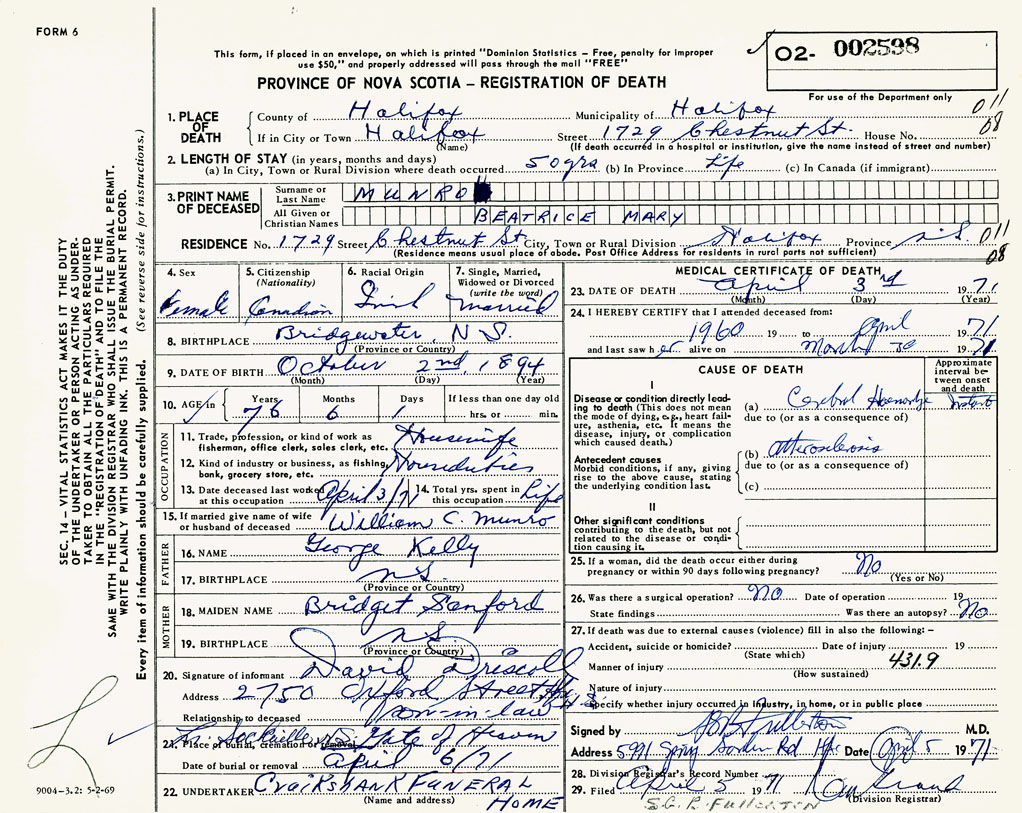 FORM 6
This form, if placed in an envelope, on which is printed "Dominion Statistics - Free, penalty for improper
use $50," and properly addressed will pass through the mail "FREE"
02- 002598
PROVINCE OF NOVA SCOTIA - REGISTRATION OF DEATH
For use of the Department only
011
08
1. PLACE OF DEATH County of Halifax Municipality of Halifax
If in City or Town Halifax Street 1729 Chestnut St. House No.
(Name) (If death occurred in a hospital or institution, give the name instead of street and number)
2. LENGTH OF STAY (in years, months and days)
(a) In City, Town or Rural Division where death occurred 50 yrs (b) In Province Life (c) In Canada (if immigrant)
3. PRINT NAME OF DECEASED Surname or Last Name MUNRO
All Given or Christian Names BEATRICE MARY
RESIDENCE No. 1729 Street Chestnut St City, Town or Rural Division Halifax Province N.S. 011
(Residence means usual place of abode. Post Office Address for residents in rural parts not sufficient) 08
4. Sex Female
5. Citizenship (Nationality) Canadian
6. Racial Origin
7. Single, Married, Widowed or Divorced (write the word) Married
8. BIRTHPLACE Bridgewater, N.S.
(Province or Country)
9. DATE OF BIRTH October 2nd, 1894
(Month) (Day) (Year)
10. AGE in Years 76 Months 6 Days 1 If less than one day old hrs. or min.
OCCUPATION
11. Trade, profession, or kind of work as fisherman, office clerk, sales clerk, etc. Housewife
12. Kind of industry or business, as fishing, bank, grocery store, etc. Houseduties
13. Date deceased last worked at this occupation April 3/71 14. Total yrs. spent in this occupation Life
15. If married give name of wife or husband of deceased William C. Munro
FATHER
16. NAME George Kelly
17. BIRTHPLACE N.S.
(Province or Country)
MOTHER
18. MAIDEN NAME Bridget Sanford
19. BIRTHPLACE NS
(Province or Country)
20. Signature of informant David Driscoll
Address 2750 Oxford Street Hfx N.S.
Relationship to deceased son-in-law
Lr. Sackville NS Gate of Heaven
21. Place of burial, cremation or removal
Date of burial or removal April 6/71
22. UNDERTAKER CRUIKSHANK FUNERAL HOME
(Name and address)
MEDICAL CERTIFICATE OF DEATH
23. DATE OF DEATH April 3rd 1971
(Month) (Day) (Year)
24. I HEREBY CERTIFY that I attended deceased from:
1960 19 to April 1971
and last saw her alive on March 30 1971
CAUSE OF DEATH
Approximate interval between onset and death
I
Disease or condition directly leading to death (This does not mean the mode of dying, e.g., heart failure, asthenia, etc. It means the disease, injury, or complication which caused death.)
(a) Cerebral Haemorrhage Instant
due to (or as a consequence of)
Antecedent causes
Morbid conditions, if any, giving rise to the above cause, stating the underlying condition last.
(b)
due to (or as a consequence of)
(c)
II
Other significant conditions
contributing to the death, but not related to the disease or condition causing it.
25. If a woman, did the death occur either during pregnancy or within 90 days following pregnancy? No
(Yes or No)
26. Was there a surgical operation? NO Date of operation 19
State findings Was there an autopsy? No
27. If death was due to external causes (violence) fill in also the following: -
Accident, suicide or homicide? Date of injury 19
(State which) 431.9
Manner of injury
(How sustained)
Nature of injury
Specify whether injury occurred in industry, in home, or in public place
Signed by Fullerton M.D.
Address 5991 Spring Garden Rd Hfx Date April 5 1971
28. Division Registrar's Record Number
29. Filed April 5 1971
(Division Registrar)
FULLERTON
SEC. 14 - VITAL STATISTICS ACT MAKES IT THE DUTY
OF THE UNDERTAKER OR PERSON ACTING AS UNDER-
TAKER TO OBTAIN ALL THE PARTICULARS REQUIRED
IN THE "REGISTRATION OF DEATH" AND TO FILE THE
SAME WITH THE DIVISION REGISTRAR WHO SHALL ISSUE THE BURIAL PERMIT.
WRITE PLAINLY WITH UNFADING INK. THIS IS A PERMANENT RECORD.
Every item of information should be carefully supplied. (See reverse side for instructions.)
9004-3.2: 5-2-69